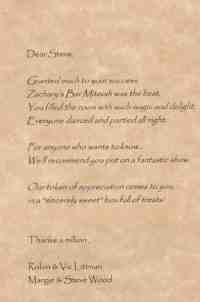 Dear Steve,
Granted much to your success
Zachary's Bar Mitzvah was the best.
You filled the room with such magic and delight,
Everyone danced and partied all night.
For anyone who wants to know...
We'll recommend you put on a fantastic show.
Our token of appreciation comes to you,
in a "sincerely sweet" box full of treats!
Thanks a million,
Robin & Vic Littman
Margie & Steve Wood